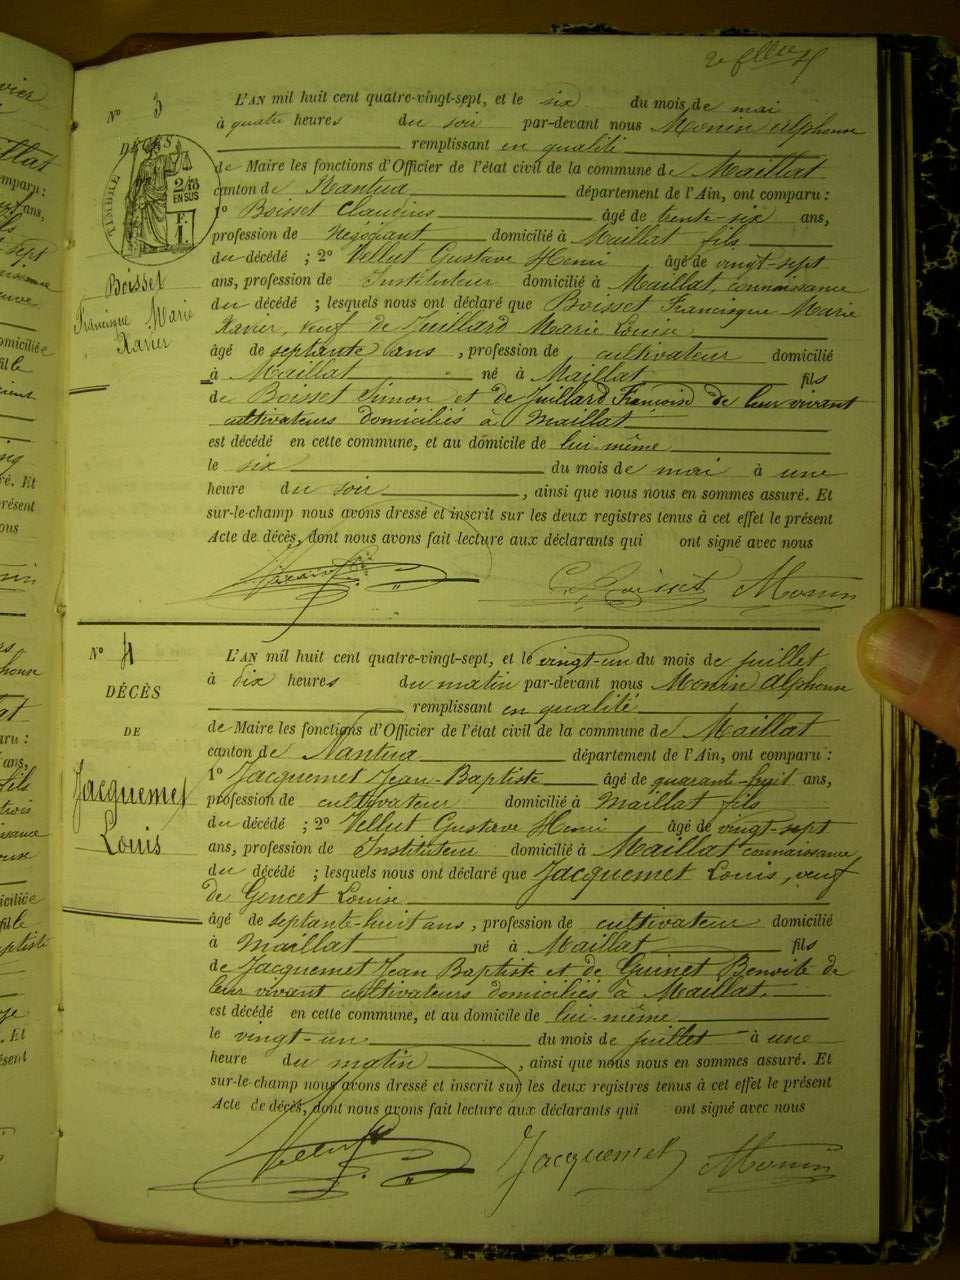 2e flle
N° 3
L'AN mil huit cent quatre-vingt-sept, et le six du mois de mai
à quatre heures du soir par-devant nous Monin Alphonse
remplissant en qualité
DÉCÈS
TIMBRE
2/10
EN SUS
de Maire les fonctions d'Officier de l'état civil de la commune de Maillat
canton de Nantua département de l'Ain, ont comparu :
1° Boisset Claudius âgé de trente-six ans,
profession de Négociant domicilié à Maillat fils
du décédé ; 2° Vellut Gustave Henri âgé de vingt-sept
ans, profession de Instituteur domicilié à Maillat, connaissance
du décédé ; lesquels nous ont déclaré que Boisset Francisque Marie
Xavier, veuf de Juillard Marie Louise
Boisset
Francisque Marie
Xavier
âgé de septante ans, profession de cultivateur domicilié
à Maillat né à Maillat fils
de Boisset Simon et de Juillard Françoise de leur vivant
cultivateurs domiciliés à Maillat
est décédé en cette commune, et au domicile de lui-même
le six du mois de mai à une
heure du soir, ainsi que nous nous en sommes assuré. Et
sur-le-champ nous avons dressé et inscrit sur les deux registres tenus à cet effet le présent
Acte de décès, dont nous avons fait lecture aux déclarants qui ont signé avec nous
C. Boisset Monin
N° 4
DÉCÈS
DE
Jacquemet
Louis
L'AN mil huit cent quatre-vingt-sept, et le vingt-un du mois de juillet
à dix heures du matin par-devant nous Monin Alphonse
remplissant en qualité
de Maire les fonctions d'Officier de l'état civil de la commune de Maillat
canton de Nantua département de l'Ain, ont comparu :
1° Jacquemet Jean-Baptiste âgé de quarante-huit ans,
profession de cultivateur domicilié à Maillat fils
du décédé ; 2° Vellut Gustave Henri âgé de vingt-sept
ans, profession de Instituteur domicilié à Maillat connaissance
du décédé ; lesquels nous ont déclaré que Jacquemet Louis, veuf
de Goncet Louise
âgé de septante-huit ans, profession de cultivateur domicilié
à Maillat né à Maillat fils
de Jacquemet Jean Baptiste et de Guinet Benoite de
leur vivant cultivateurs domiciliés à Maillat.
est décédé en cette commune, et au domicile de lui-même
le vingt-un du mois de juillet à une
heure du matin, ainsi que nous nous en sommes assuré. Et
sur-le-champ nous avons dressé et inscrit sur les deux registres tenus à cet effet le présent
Acte de décès, dont nous avons fait lecture aux déclarants qui ont signé avec nous
Vellut Jacquemet Monin